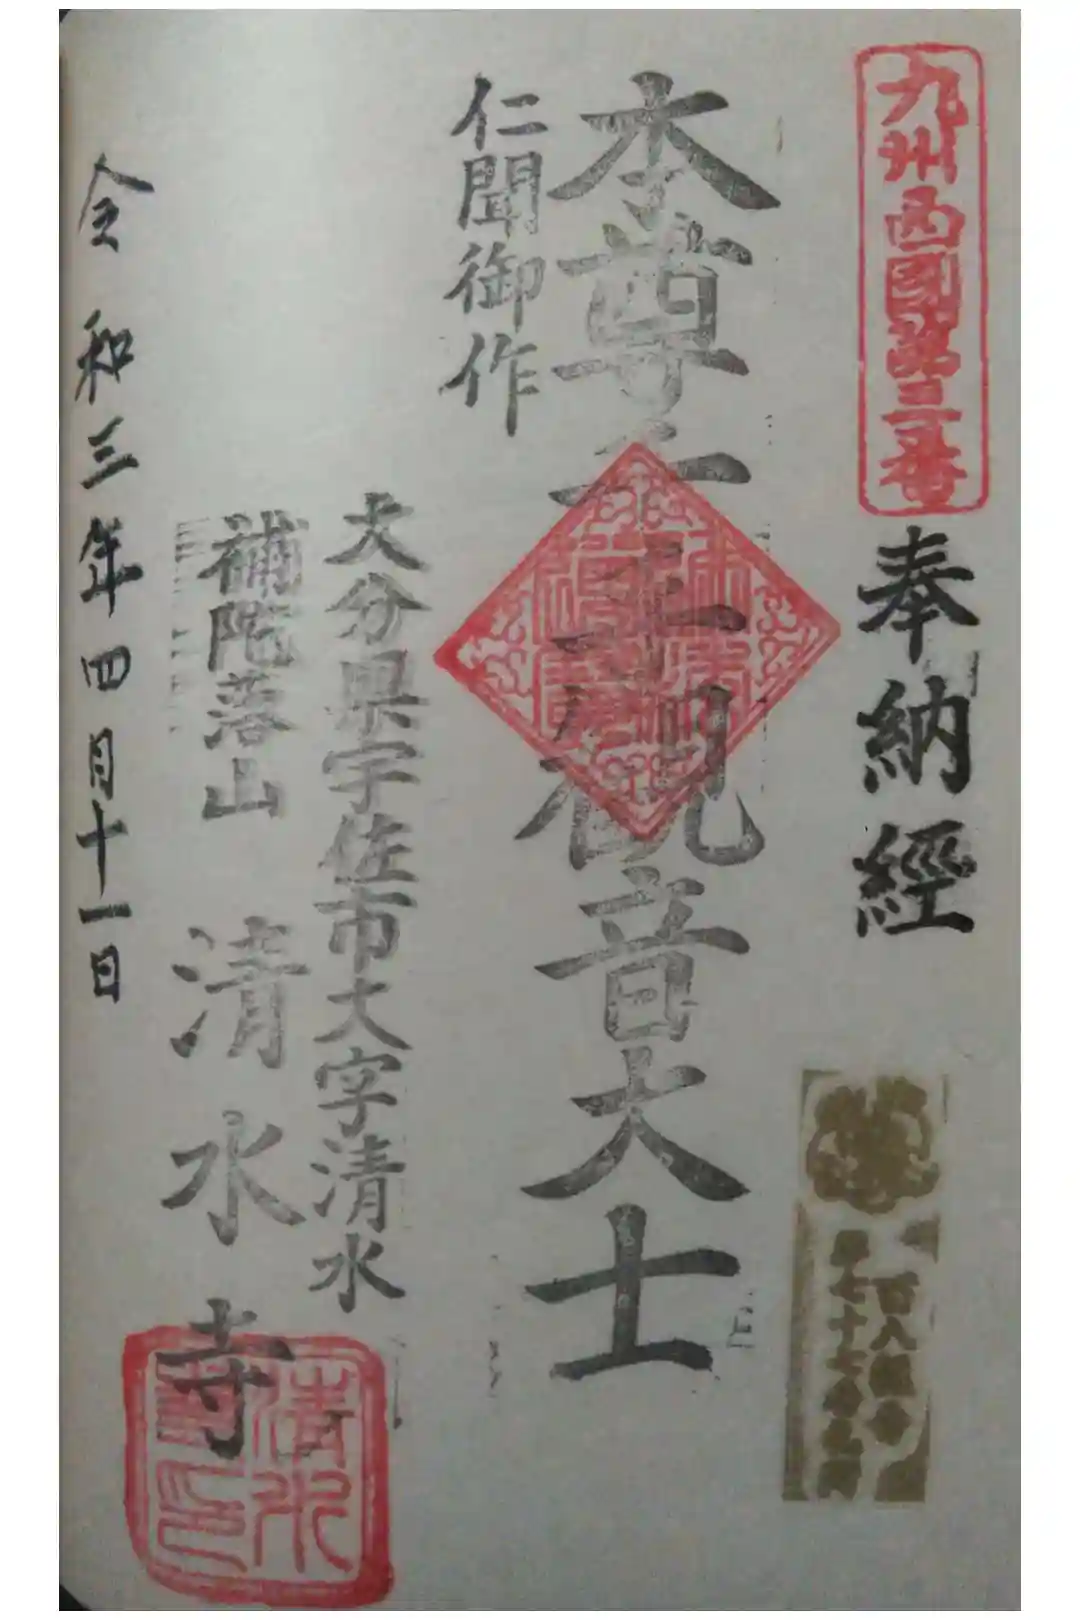 九州西國第三番
奉納經
本尊千手観音大士
仁聞御作
大分県宇佐市大字清水
補陀落山 清水寺
清水
令和三年四月十一日